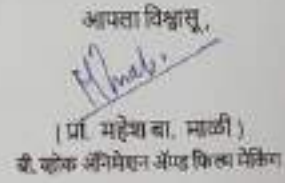 आपला विश्वासू,
(प्रा. महेश बा. माळी)
बी. व्होक ॲनिमेशन ॲण्ड फिल्म मेकिंग